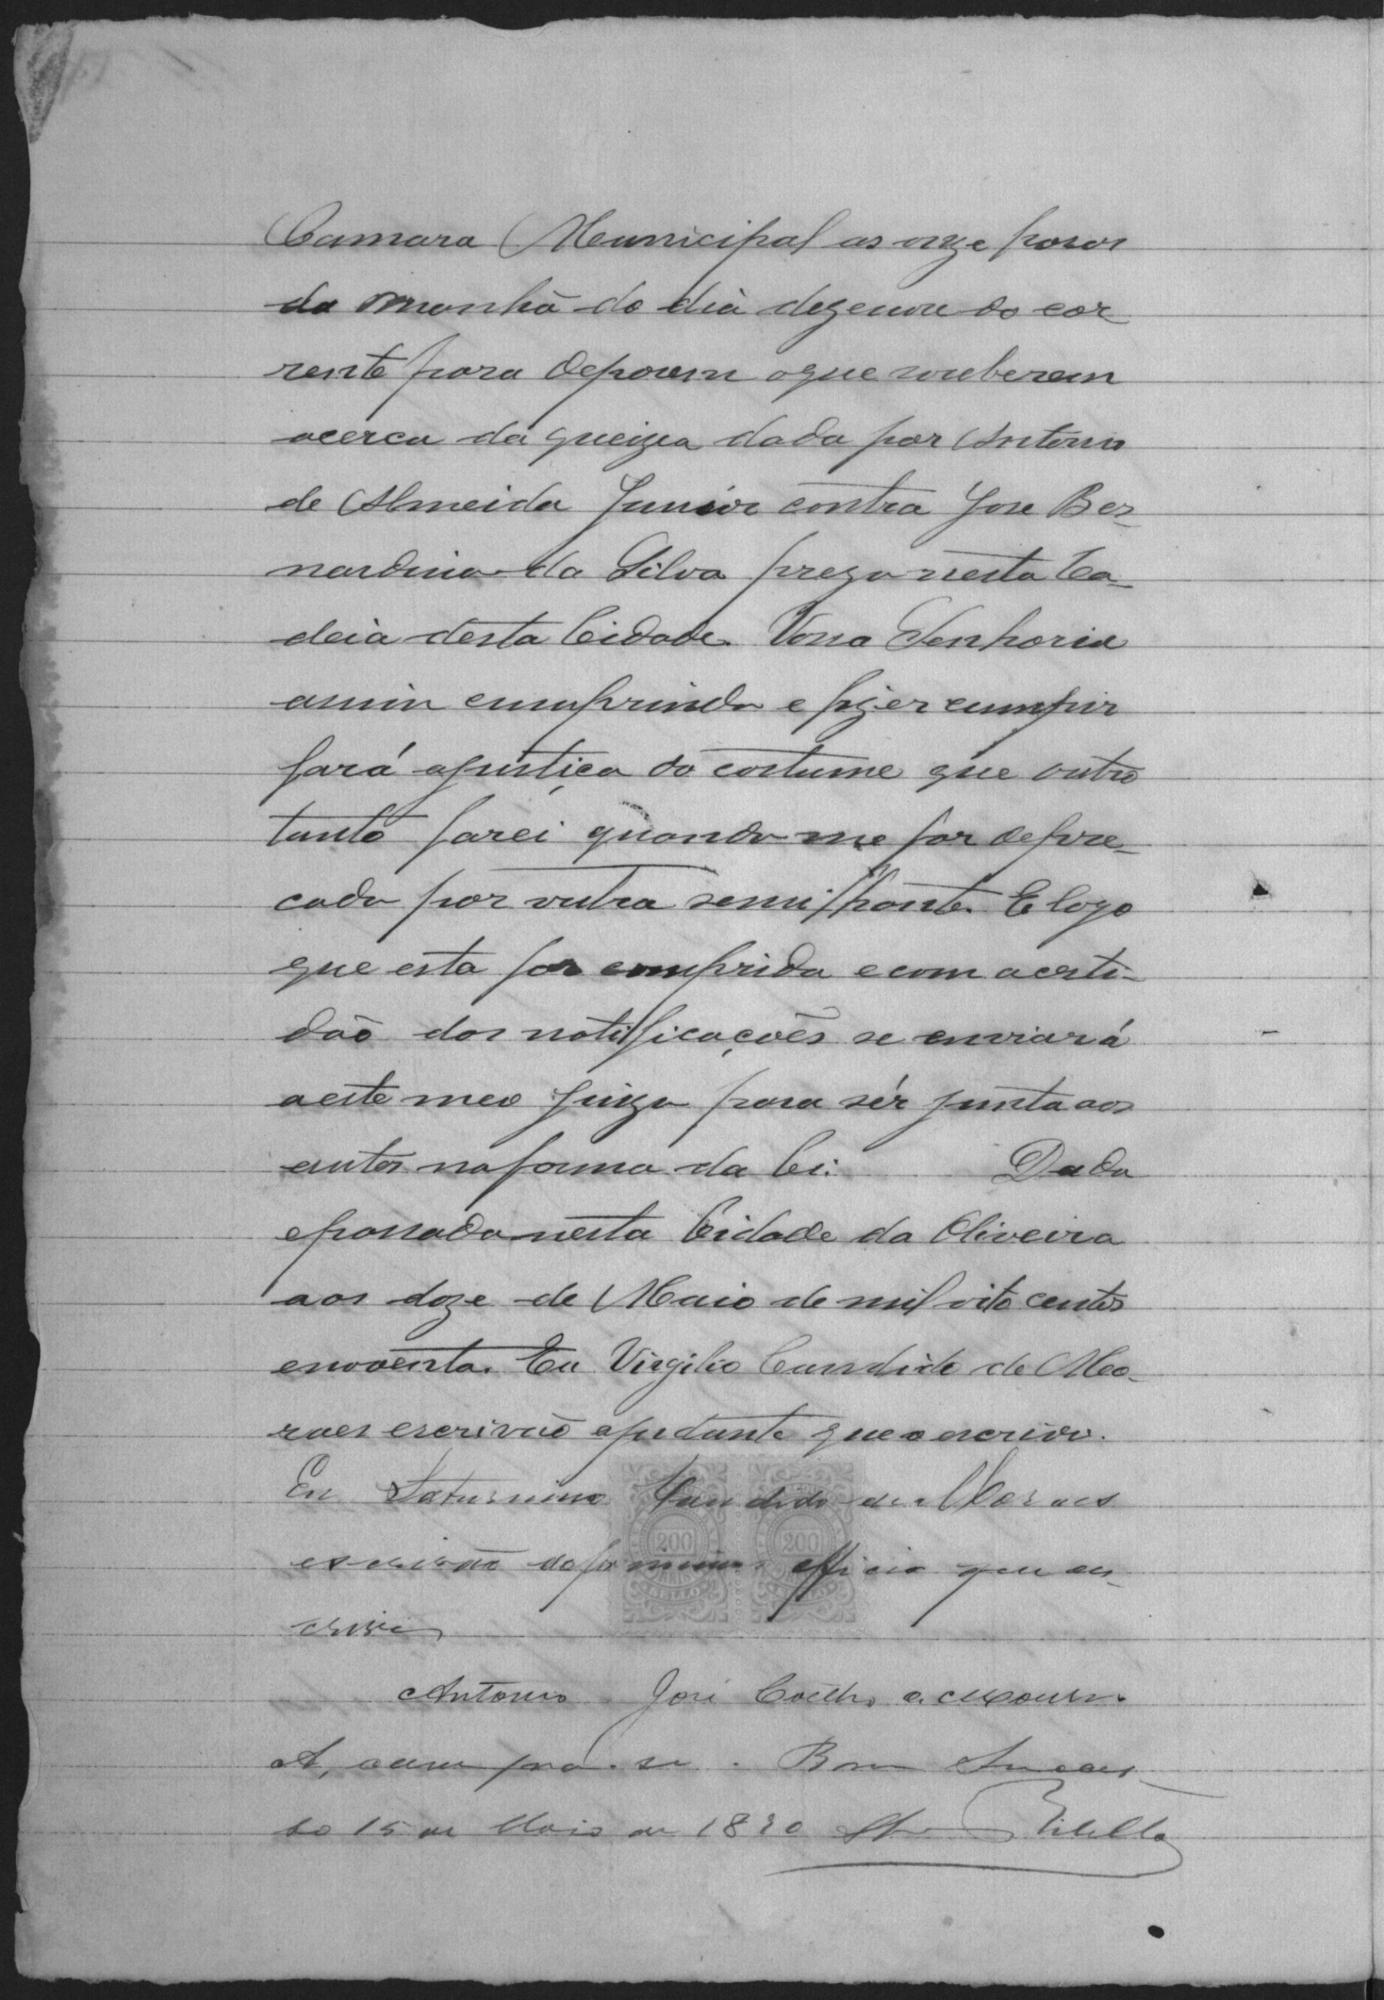 Camara Municipal as onze horas
da manhã do dia dezenove do cor
rente para deporem o que souberem
acerca da queixa dada por Antonio
de Almeida Junior contra José Ber-
nardino da Silva prezo nesta Ca-
deia desta Cidade. Vossa Senhoria
assim cumprindo e fizer cumprir
fará a justiça do costume que outro
tanto farei quando me for depre-
cado por outra semilhante. E logo
que esta for comprida e com a certi-
dão das notificações se enviará
a este meo Juizo para sér junta aos
autos na forma da lei. Dada
e passada nesta Cidade da Oliveira
aos doze de Maio de mil oito centos
e noventa. Eu Virgilio Candido de Mo-
raes escrivão ajudante que o escrivi.
Eu Saturnino Candido de Moraes
escrivão do primeiro officio que es-
crivi
200 200
Antonio José Coelho e Moura
A, cumpra-se. Bom Succes-
so 15 de Maio de 1890 Vilella